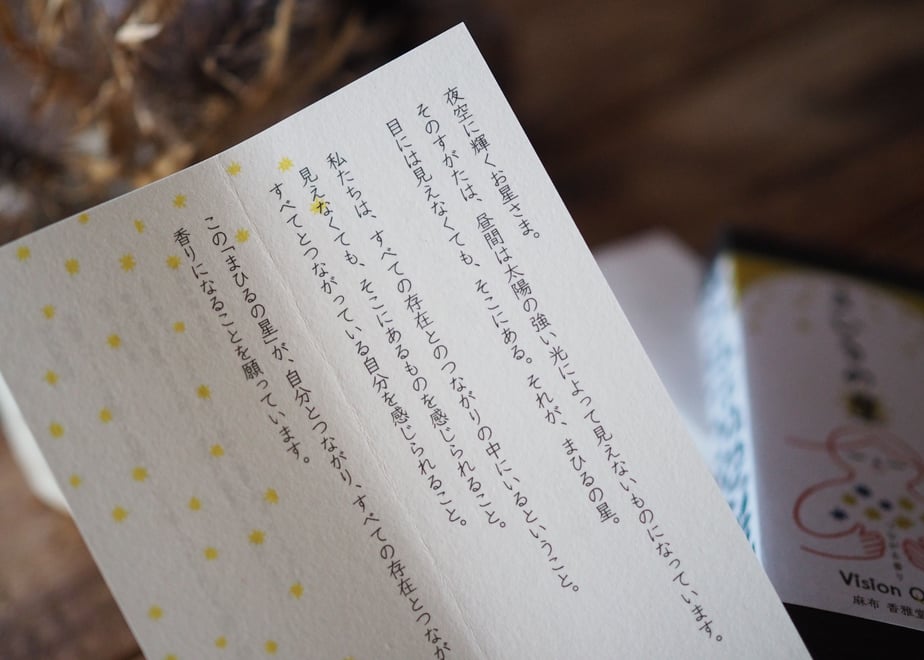 夜空に輝くお星さま。
そのすがたは、昼間は太陽の強い光によって見えないものになっています。
目には見えなくても、そこにある。それが、まひるの星。
私たちは、すべての存在とのつながりの中にいるということ。
見えなくても、そこにあるものを感じられること。
すべてとつながっている自分を感じられること。
この「まひるの星」が、自分とつながり、すべての存在とつなが
香りになることを願っています。
Vision
麻布 香雅堂